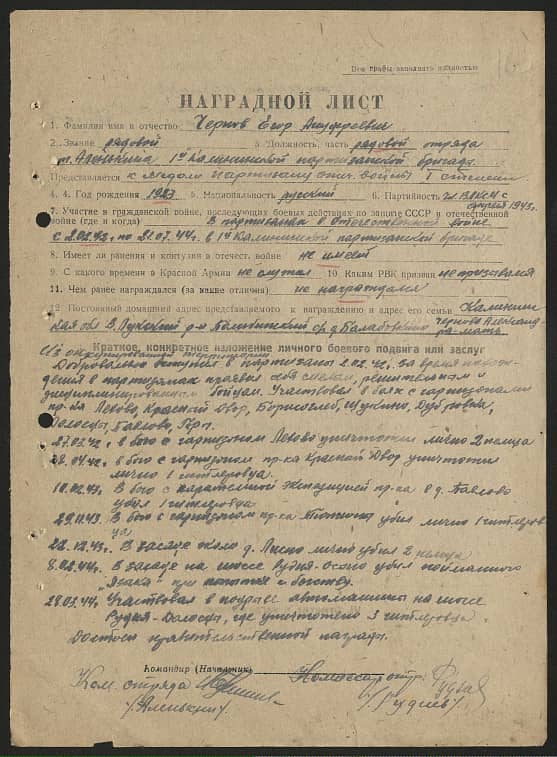 Все графы заполнять полностью
НАГРАДНОЙ ЛИСТ
1. Фамилия имя и отчество Чернов Егор
2. Звание рядовой 3. Должность, часть рядовой отряда
т. Аленькина 1ой Калининской партизанской бригады
Представляется к медали партизану отеч. войны I степени
4. 4. Год рождения 1923 5. Национальность русский 6. Партийность чл. ВЛКСМ с
1943г.
7. Участие в гражданской войне, последующих боевых действиях по защите СССР и отечественной
войне (где и когда) В партизанах в Отечественной войне
с 2.02.42г. по 21.07.44г. в 1ой Калининской партизанской бригаде
8. Имеет ли ранения и контузии в отечеств. войне не имеет
9. С какого времени в Красной Армии не служил 10. Каким РВК призван не призывался
11. Чем ранее награждался (за какие отличия) не награждался
12. Постоянный домашний адрес представляемого к награждению и адрес его семьи Калинин
ская обл. В. Лукский р-н с/с д. Чернова Александ
ра - мать
Краткое, конкретное изложение личного боевого подвига или заслуг
Добровольно вступил в партизаны 2.02.42г. За время нахож-
дения в партизанах проявил себя смелым, решительным и
дисциплинированным бойцом. Участвовал в боях с гарнизонами
пр-ка Лёвово, Красный Двор, Борисоглеб, Щукино, Дубровка,
Долосцы, Павлово,
27.02.42г. в бою с гарнизоном Лёвово уничтожил лично 2 немца
28.04.42г. в бою с гарнизоном пр-ка Красной Двор уничтожил
лично 1 гитлеровца.
10.02.43г. В бою с карательной экспедицией пр-ка в д. Павлово
убил 1 гитлеровца.
29.11.43. В бою с гарнизоном пр-ка убил лично 1 гитлеров
ца
22.12.43г. В засаде около д. лично убил 2 немца
8.02.44г. В засаде на шоссе Рудня - убил пойманного
"языка" при попытке к бегству.
28.03.44г. Участвовал в подрыве автомашины на шоссе
Рудня-Долосцы, где уничтожено 3 гитлеровца.
Достоин правительственной награды.
Командир (Начальник) Комиссар отр.
Ком. отряда
/Аленькин/ /Рудиев/